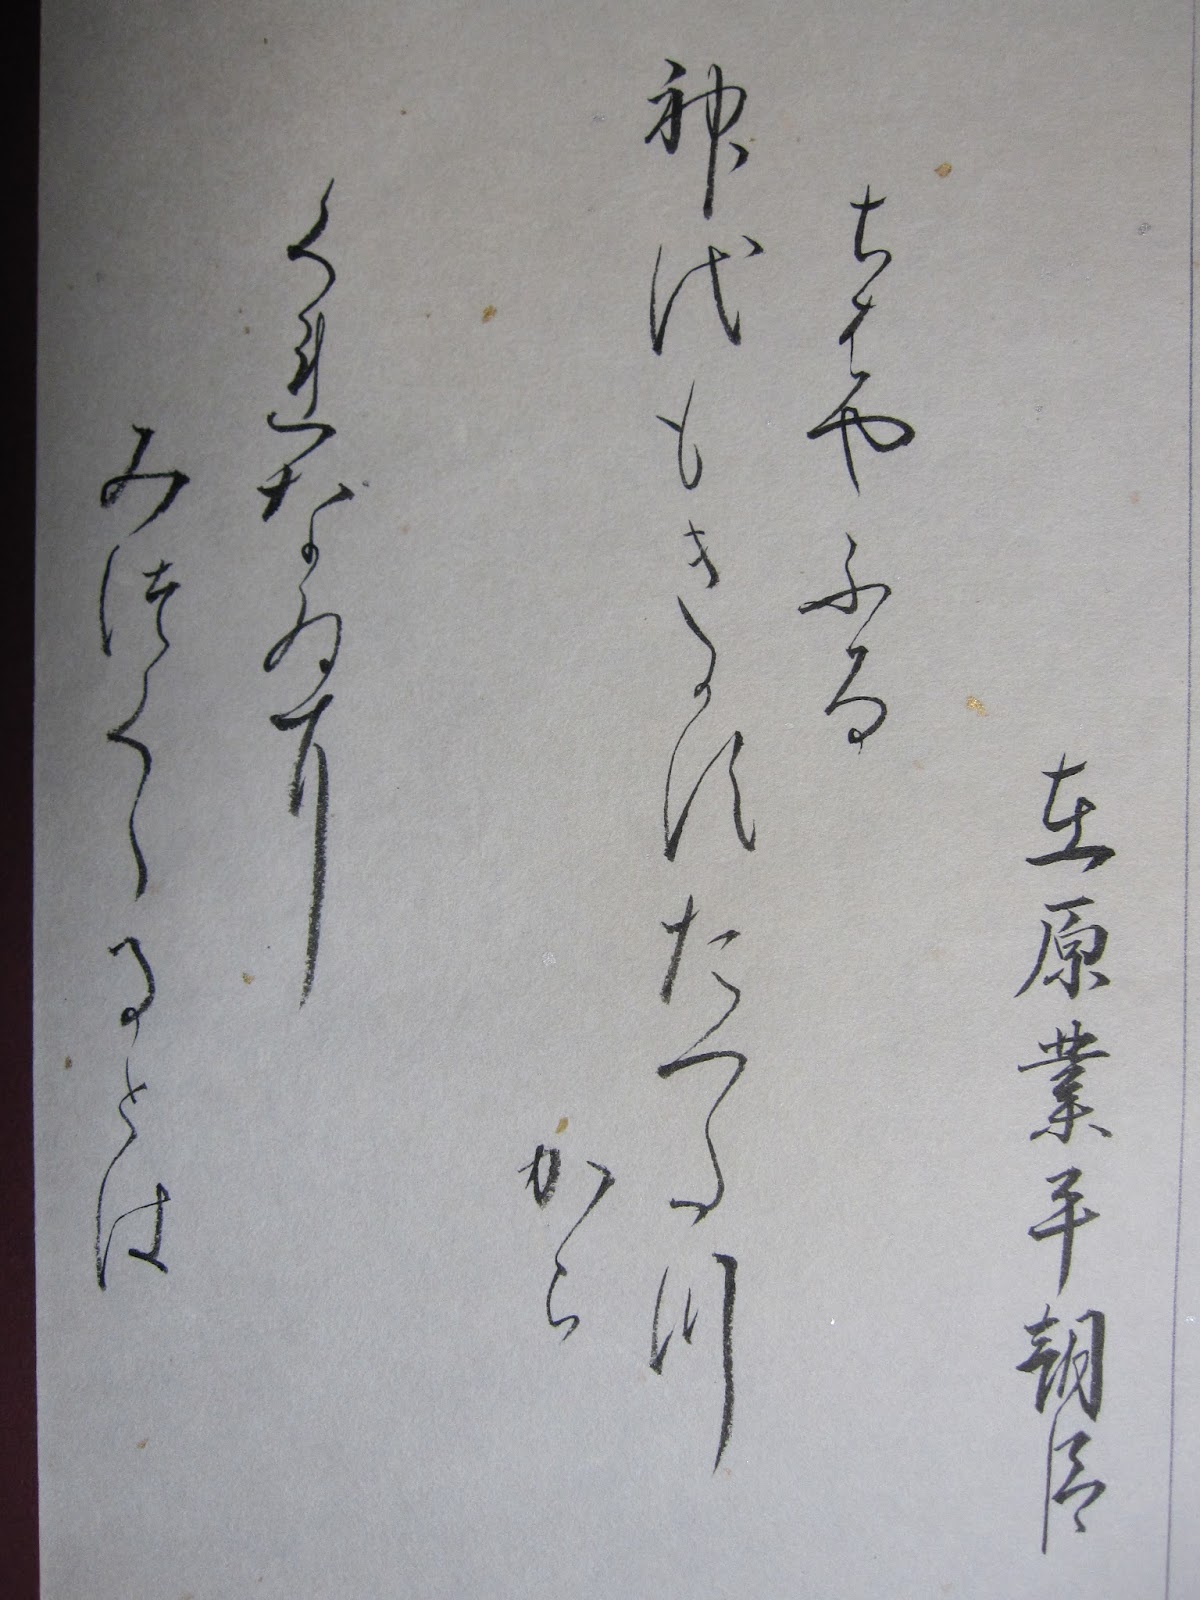 在原業平朝臣
ちはやふる
神代もきかすたつた川
から
くれなゐに
みつくくるとは